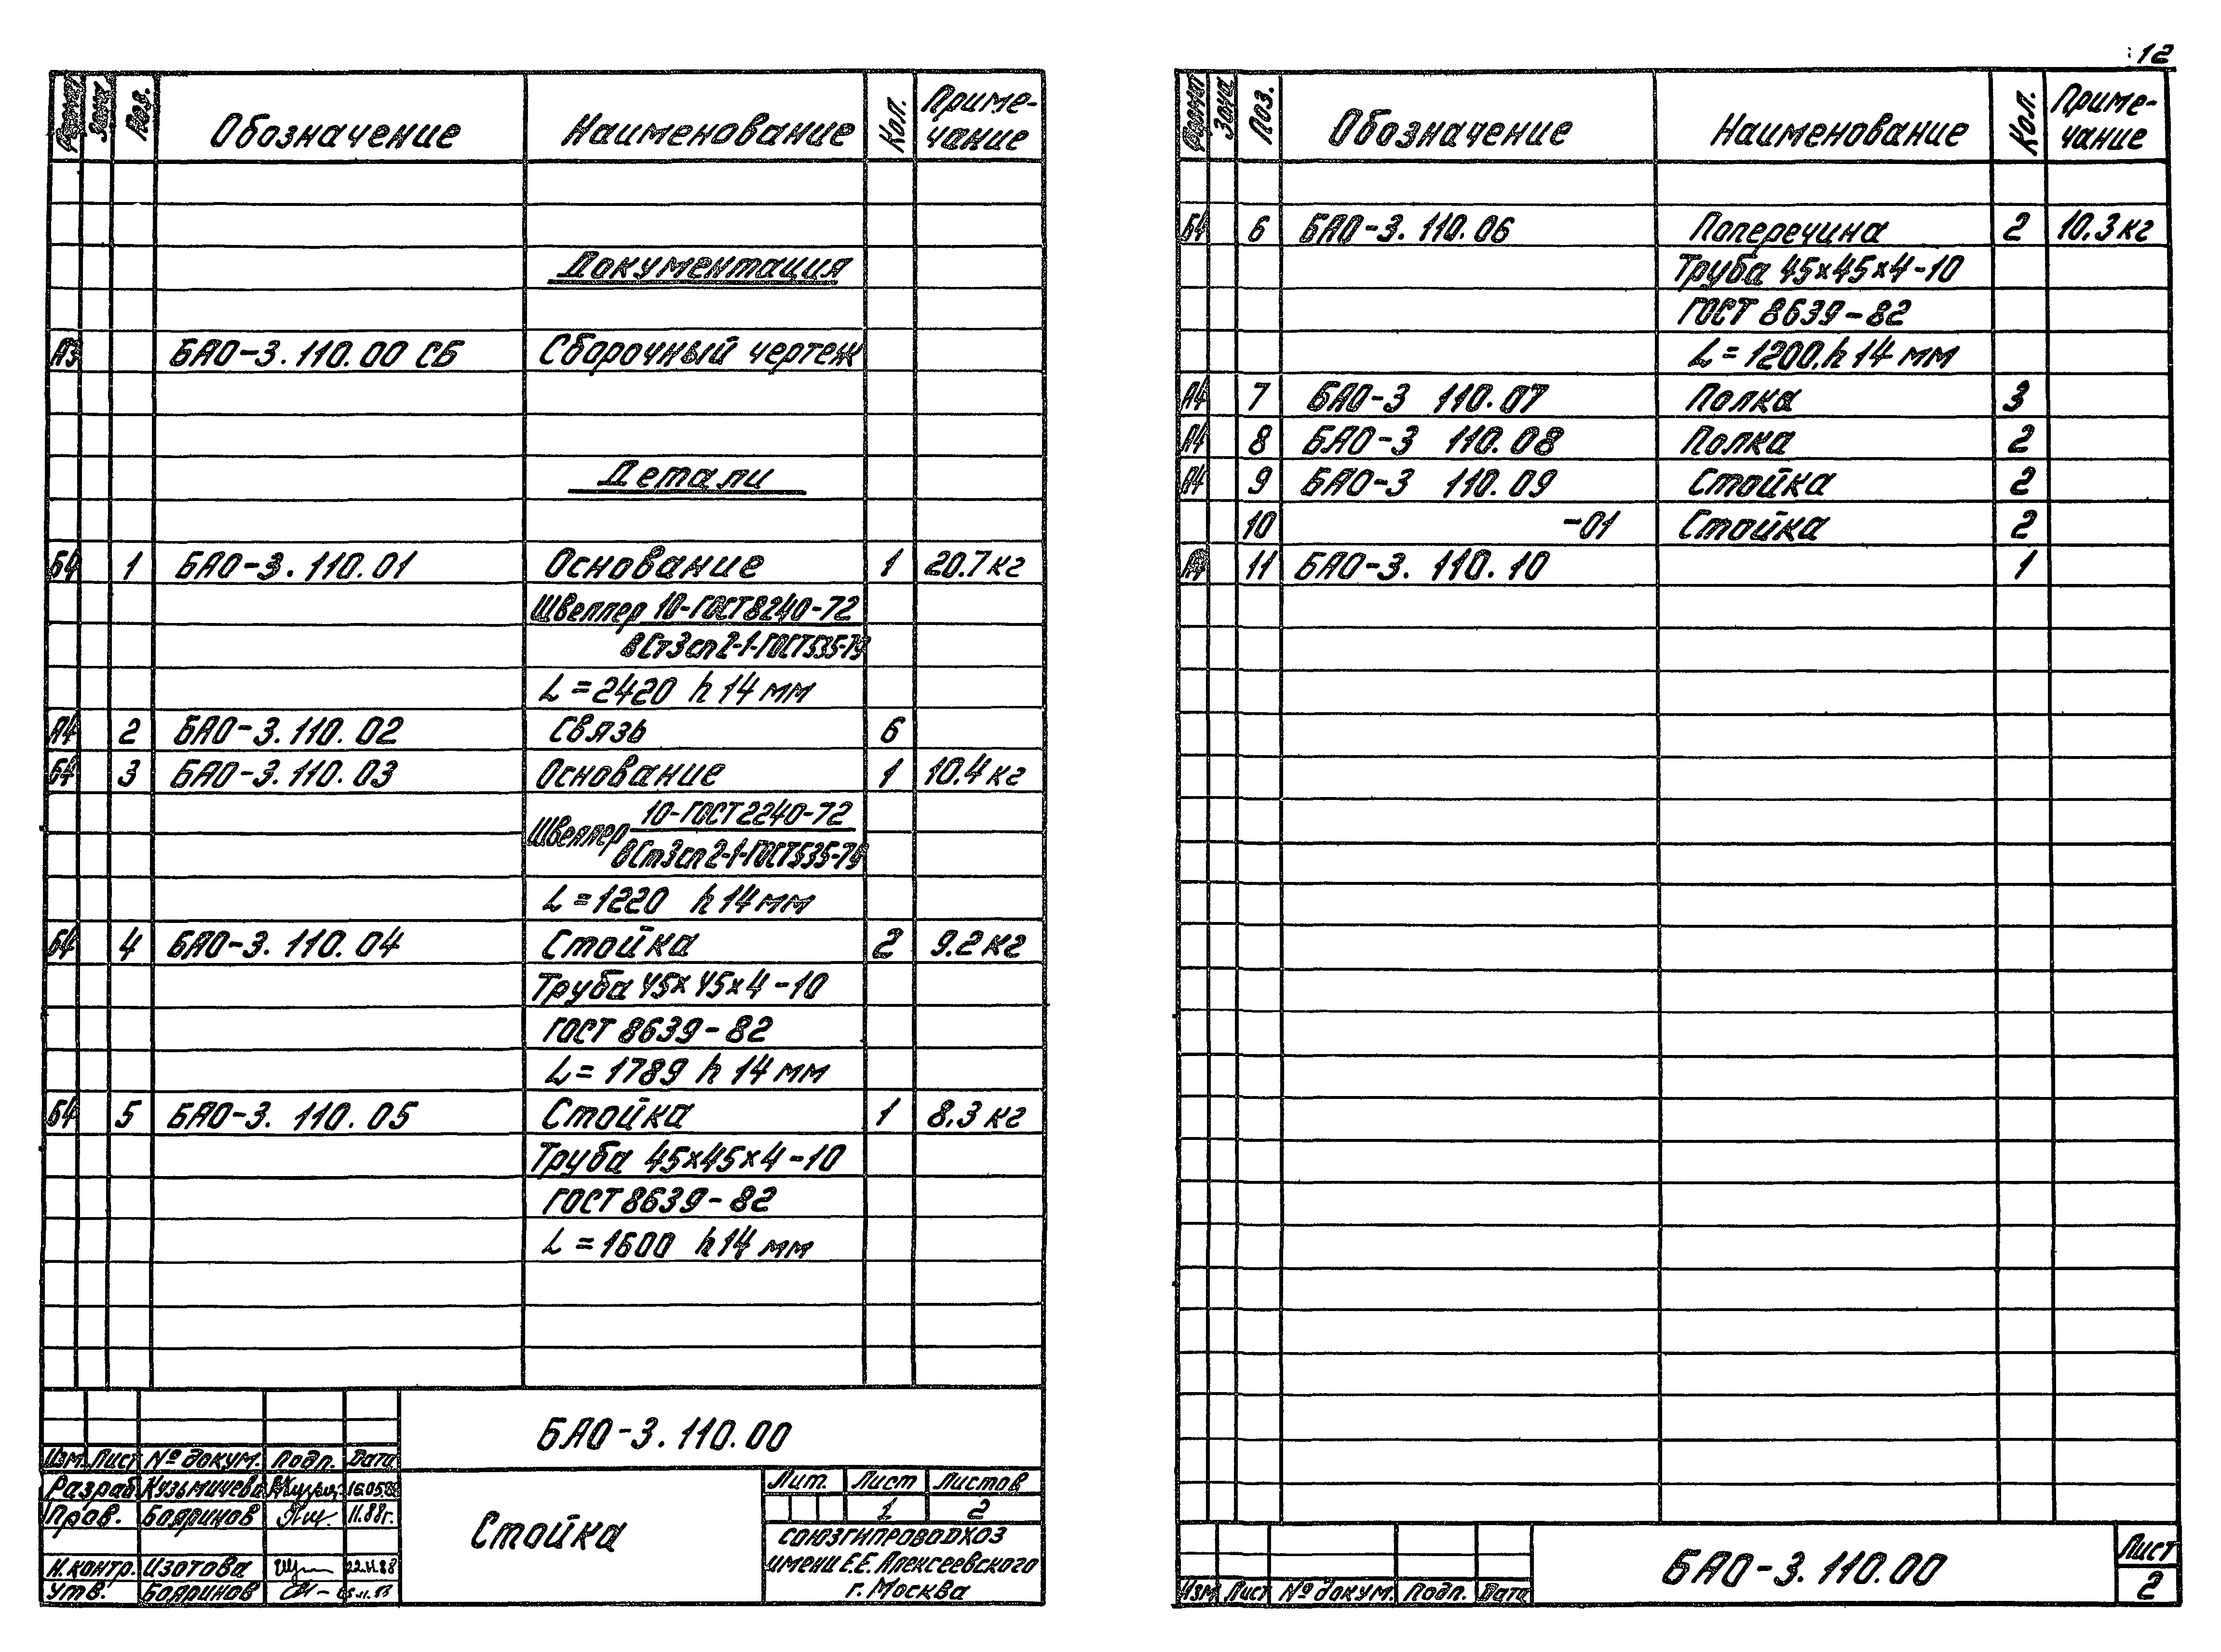 12
Формат Зона Поз. Обозначение Наименование Кол. Приме-
чание
Документация
А3 БАО-3.110.00 СБ Сборочный чертеж
Детали
Б4 1 БАО-3.110.01 Основание 1 20.7 кг
Швеллер 10-ГОСТ 8240-72
ВСт3сп2-1-ГОСТ535-79
L=2420 h14 мм
А4 2 БАО-3.110.02 Связь 6
Б4 3 БАО-3.110.03 Основание 1 10.4 кг
Швеллер 10-ГОСТ2240-72
ВСт3сп2-1-ГОСТ535-79
L=1220 h14 мм
Б4 4 БАО-3.110.04 Стойка 2 9.2 кг
Труба 45х45х4-10
ГОСТ 8639-82
L=1789 h14 мм
Б4 5 БАО-3.110.05 Стойка 1 8.3 кг
Труба 45х45х4-10
ГОСТ 8639-82
L=1600 h14 мм
БАО-3.110.00
Изм. Лист № докум. Подп. Дата
Разраб. Кузьмичева 16.05.88
Пров. Бояринов 11.88г.
Н.контр. Изотова 22.11.88
Утв. Бояринов
Стойка
Лит. Лист Листов
1 2
СОЮЗГИПРОВОДХОЗ
имени Е.Е. Алексеевского
г. Москва
Формат Зона Поз. Обозначение Наименование Кол. Приме-
чание
Б4 6 БАО-3.110.06 Поперечина 2 10.3 кг
Труба 45х45х4-10
ГОСТ 8639-82
L=1200.h14 мм
А4 7 БАО-3 110.07 Полка 3
А4 8 БАО-3 110.08 Полка 2
А4 9 БАО-3 110.09 Стойка 2
10 -01 Стойка 2
А4 11 БАО-3.110.10 1
БАО-3.110.00
Лист
2
Изм Лист № докум. Подп. Дата